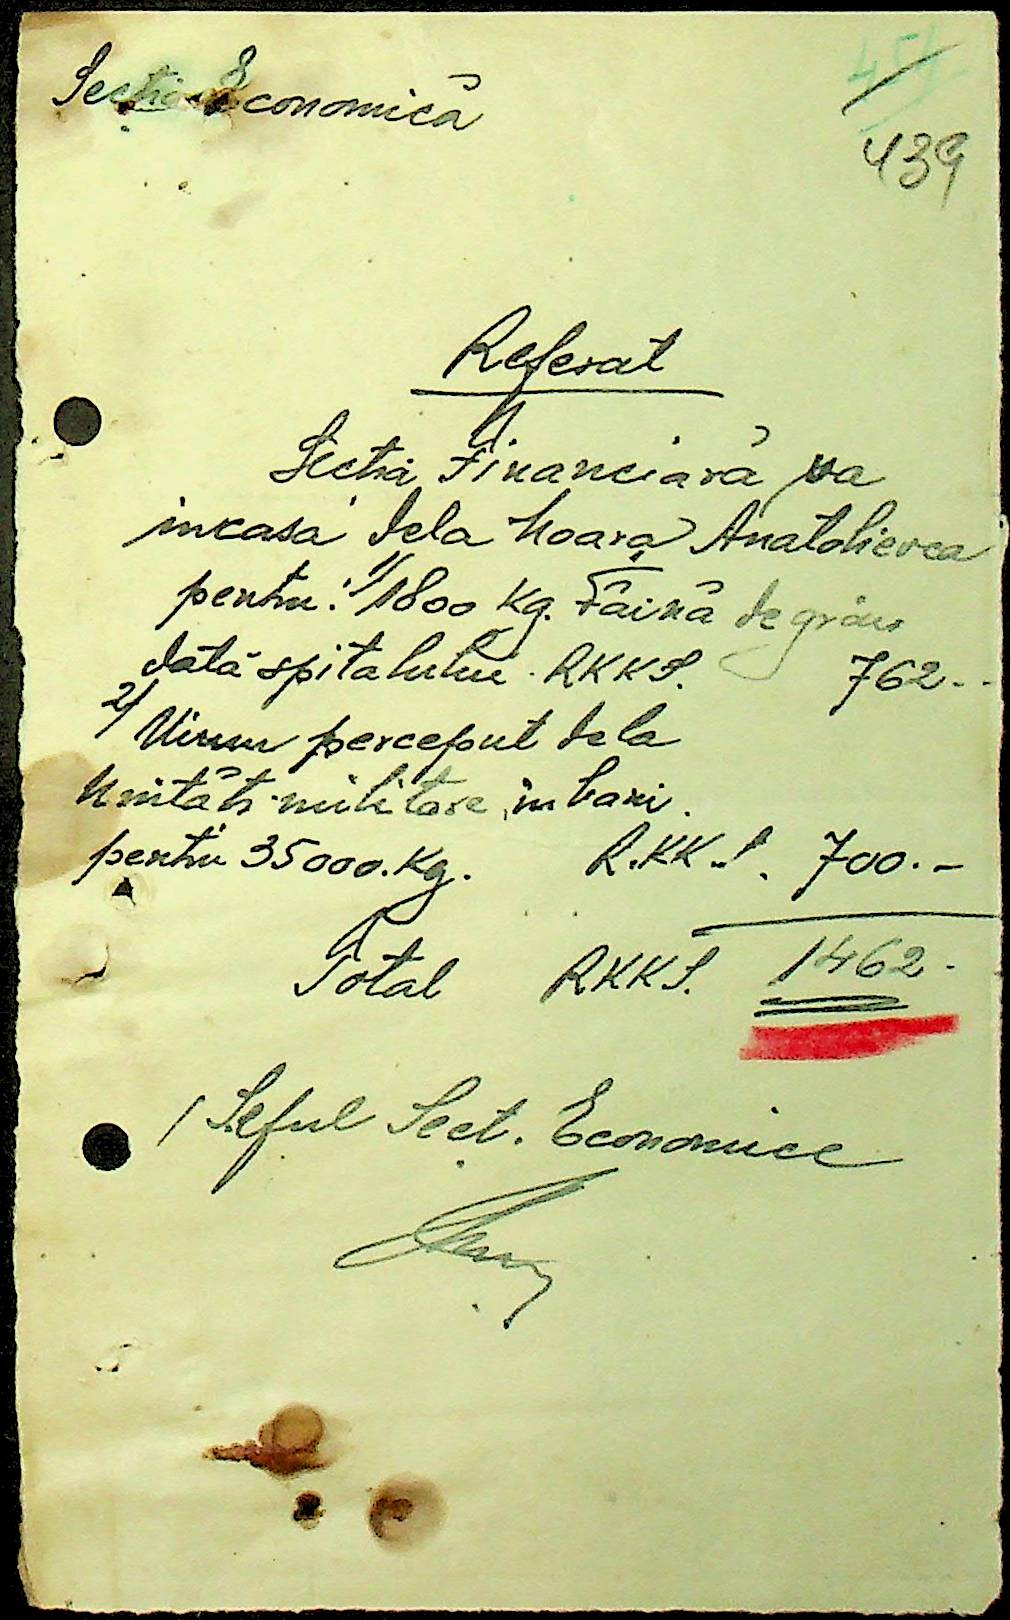 Secția Economică
439
Referat
Secția Financiară va
incasa dela moara Anatolievca
pentru: 1/ 1800 Kg. Făină de grâu
dată spitalului RKKS. 762.-
2/ Uium perceput dela
Unități militare in bani
pentru 35000.Kg. R.KK.S. 700.-
Total RKKS. 1462.-
/ Șeful Sect. Economice